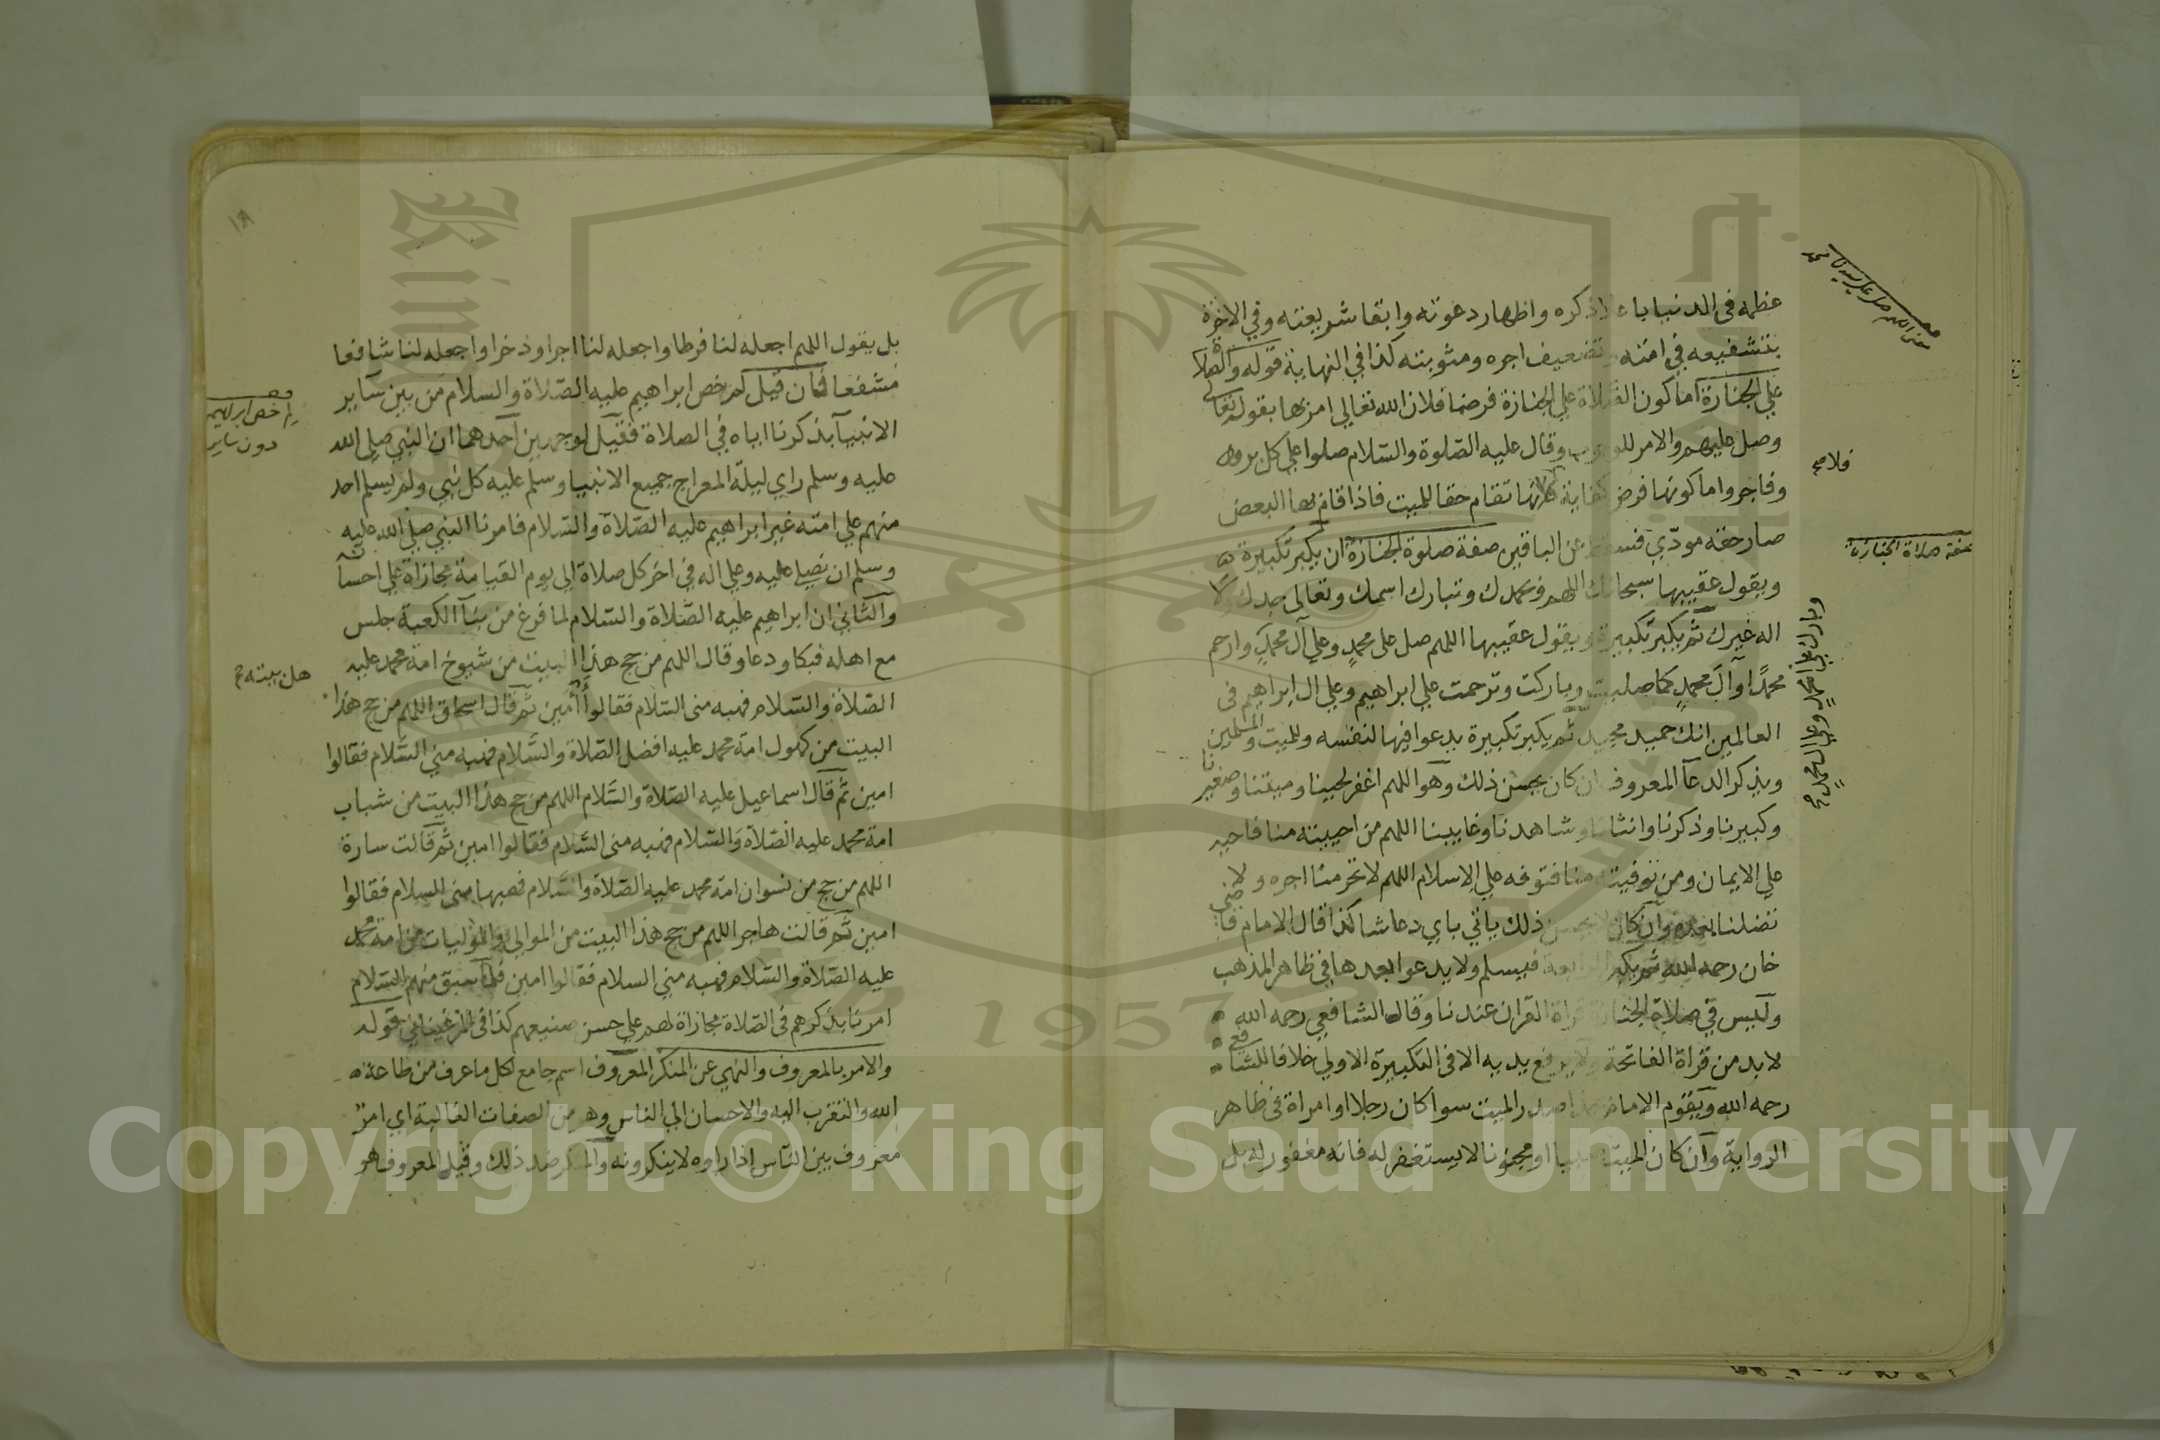 عظمه في الدنيا باعلاذكره واظهار دعوته وابقا شريعته وفي الاخرة
بتشفيعه في امته وتضعيف اجره ومثوبته كذا في النهاية قوله والصلاة
علي الجنازة اما كون الصلاة علي الجنازة فرضا فلان الله تعالي امر بها بقوله تعالي
وصل عليهم والامر للوجوب وقال عليه الصلوة والسلام صلوا علي كل بر
وفاجر واما كونها فرض كفاية فلانها تقام حقا للميت فاذا قام بها البعض
صار حقه مودّي فسقط عن الباقين صفة صلوة الجنازة ان يكبر تكبيرة
ويقول عقيبها سبحانك اللهم وبحمدك وتبارك اسمك وتعالى جدك ولا
اله غيرك ثم يكبر تكبيرة ويقول عقيبها اللهم صل على محمدٍ وعلي آل محمدٍ وارحم
محمدًا وآل محمدٍ كما صليت وباركت وترحمت علي ابراهيم وعلي ال ابراهيم في
العالمين انك حميد مجيد ثم يكبر تكبيرة يدعوا فيها لنفسه وللميت وللمسلمين
ويذكر الدعآ المعروف ان كان يحسن ذلك وهو اللهم اغفر لحينا وميتنا وصغيرنا
وكبيرنا وذكرنا وانثانا وشاهدنا وغايبنا اللهم من احييته منا فاحيه
علي الايمان ومن توفيته منا فتوفه علي الاسلام اللهم لا تحرمنا اجره ولا
تضلنا بعده وان كان لا يحسن ذلك ياتي باي دعا شا كذا قال الامام قاضي
خان رحمه الله ثم يكبر الرابعة فيسلم ولا يدعوا بعدها في ظاهر المذهب
وليس في صلاة الجنازة قراة القران عندنا وقال الشافعي رحمه الله
لا بد من قراة الفاتحة ولا يرفع يديه الا في التكبيرة الاولي خلافا للشافعي
رحمه الله ويقوم الامام بحذا صدر الميت سوا كان رجلا او امراة في ظاهر
الرواية وان كان الميت صبيا او مجنونا لا يستغفر له فانه مغفور له بل
معنى اللهم صل علي سيدنا محمد
صفة صلاة الجنازة
وبارك علي محمدٍ وعلي ال محمدٍ صح
بل يقول اللهم اجعله لنا فرطا واجعله لنا اجرا وذخرا واجعله لنا شافعا
مشفعا فان قيل لم خص ابراهيم عليه الصلاة والسلام من بين ساير
الانبيآ بذكرنا اياه في الصلاة فقيل لوجهين احدهما ان النبي صلى الله
عليه وسلم راي ليلة المعراج جميع الانبيا وسلم عليه كل نبي ولم يسلم احد
منهم علي امته غير ابراهيم عليه الصلاة والسلام فامرنا النبي صلي الله عليه
وسلم ان نصلي عليه وعلي اله في اخر كل صلاة الي يوم القيامة مجازاة علي احسانه
والثاني ان ابراهيم عليه الصلاة والسلام لما فرغ من بنآ الكعبة جلس
مع اهله فبكا ودعا وقال اللهم من حج هذا البيت من شيوخ امة محمد عليه
الصلاة والسلام فهبه منى السلام فقالوا أمين ثم قال اسحاق اللهم من حج هذا
البيت من كهول امة محمد عليه افضل الصلاة والسلام فهبه مني السلام فقالوا
امين ثم قال اسماعيل عليه الصلاة والسلام اللهم من حج هذا البيت من شباب
امة محمد عليه الصلاة والسلام فهبه منى السلام فقالوا امين ثم قالت سارة
اللهم من حج من نسوان امة محمد عليه الصلاة والسلام فهبها منى السلام فقالوا
امين ثم قالت هاجر اللهم من حج هذا البيت من الموالي والموليات من امة محمد
عليه الصلاة والسلام فهبه مني السلام فقالوا امين فلما سبق منهم السلام
امرنا بذكرهم في الصلاة مجازاة لهم علي حسن صنيعهم كذا في المرغيناني قوله
والامر بالمعروف والنهي عن المنكر المعروف اسم جامع لكل ما عرف من طاعة
الله والتقرب اليه والاحسان الي الناس وهو من الصفات الغالبة اي امر
معروف بين الناس اذا راوه لا ينكرونه والمنكر ضد ذلك وقيل المعروف هو
لم خص ابراهيم
دون ساير
اهل بيته صح
١٨
King Saud University
1957
Copyright © King Saud University